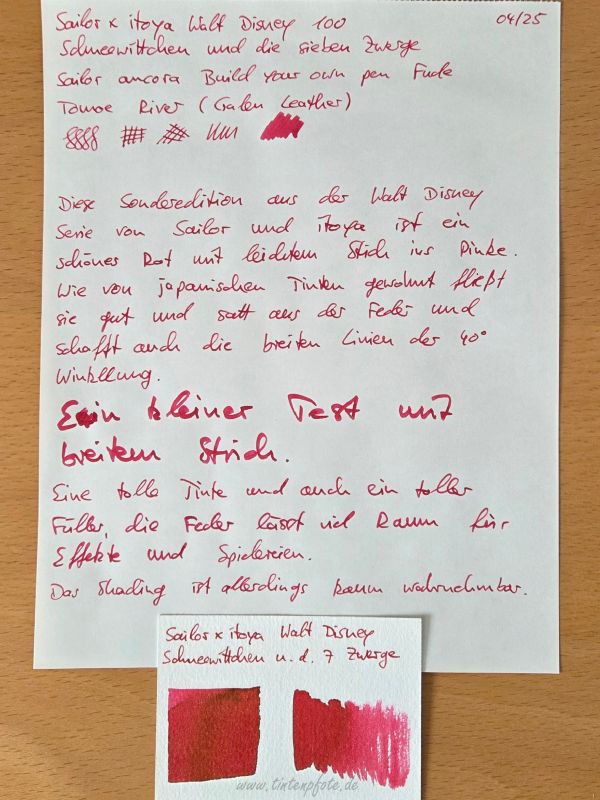 Sailor x itoya Walt Disney 100 04/25
Schneewittchen und die sieben Zwerge
Sailor ancora Build your own pen Fude
Tomoe River (Galen Leather)
Diese Sonderedition aus der Walt Disney
Serie von Sailor und itoya ist ein
schönes Rot mit leichtem Stich ins Pinke.
Wie von japanischen Tinten gewohnt fließt
sie gut und satt aus der Feder und
schafft auch die breiten Linien der 40°
Winkllung.
Ein kleiner Test mit
breitem Strich.
Eine tolle Tinte und auch ein toller
Füller, die Feder lässt viel Raum für
Effekte und Spielereien.
Das Shading ist allerdings kaum wahrnehmbar.
Sailor x itoya Walt Disney
Schneewittchen u. d. 7 Zwerge
www.tintenpfote.de